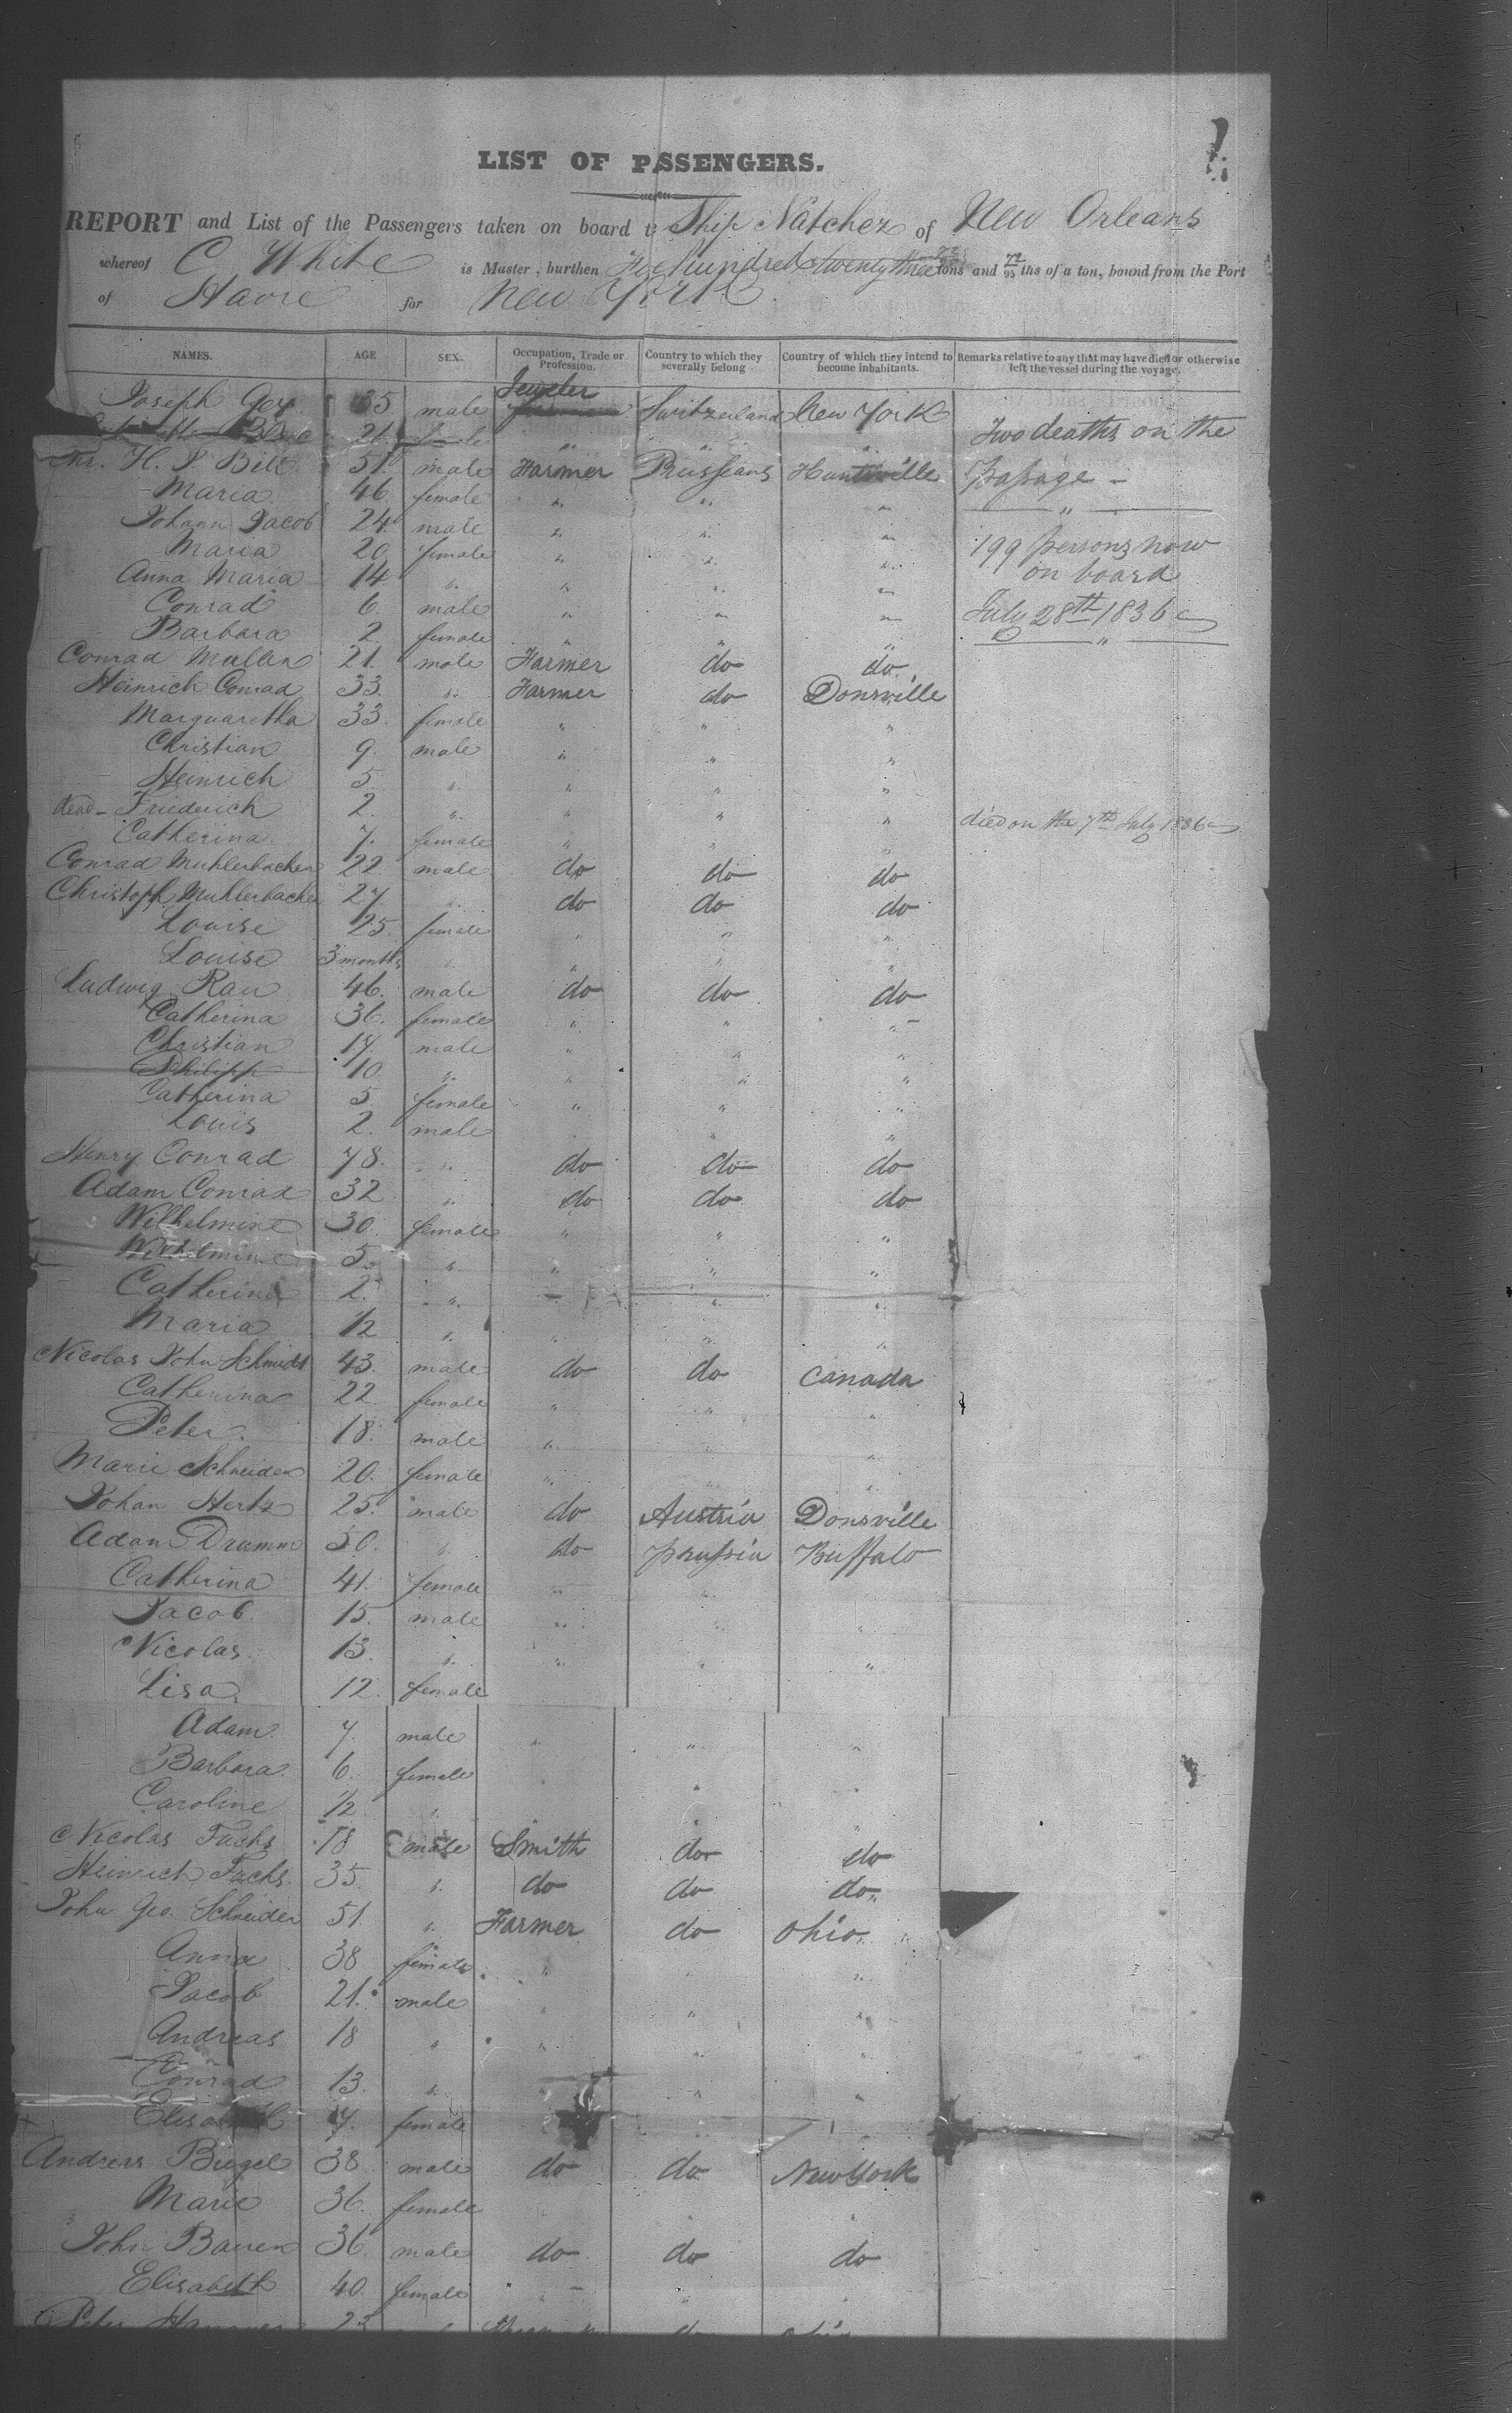 LIST OF PASSENGERS.
REPORT and List of the Passengers taken on board Ship Natchez of New Orleans
whereof C White is Master, burthen hundred twenty three 72 tons and 72/95 ths of a ton, bound from the Port
of Havre for New York
NAMES. AGE SEX. Occupation, Trade or Profession. Country to which they severally belong Country of which they intend to become inhabitants. Remarks relative to any that may have died or otherwise left the vessel during the voyage.
Joseph Gex 35 male Jeweler Switzerland New York
21 " " " Two deaths on the
H. P. Bill 51 male Farmer Prussians Huntsville passage -
Maria 46 female " " "
Johann Jacob 24 male " " "
Maria 20 female " " " 199 persons now
Anna Maria 14 " " " " on board
Conrad 6. male " " " July 28th 1836
Barbara 2 female " " "
Conrad Muller 21. male Farmer do do.
Heinrich Conrad 33. " Farmer do Donsville
Marguaretha 33. female " " "
Christian 9. male " " "
Heinrich 5 " " " "
dead - Friederich 2. " " " " died on the 7th July 1836
Catherina 7. female " " "
Conrad Muhlerbacher 22 male do do do
Christoph Muhlerbacher 27 " do do do
Louise 25. female " " "
Louise 3 months " " " "
Ludwig Rau 46. male do do do
Catherina 36. female " " "
Christian 14. male " " "
Philipp 10. " " " "
Catherina 5 female " " "
Louis 2. male " "
Henry Conrad 78. " do do do
Adam Conrad 32 " do do do
Wilhelmine 30. female " " "
Wilhelmine 5. " " " "
Catherina 2. " " " "
Maria 1/2 " " " "
Nicolas John Schmidt 43. male do do Canada
Catherina 22 female " " "
Peter. 18. male " " "
Marie Schneider 20. female " " "
Johan Hertz 25. male do Austria Donsville
Adan Drumm 50. " do prussia Buffalo
Catherina 41. female " "
Jacob 15. male " " "
Nicolas 13. " " " "
Lisa 12. female
Adam 7. male " " "
Barbara. 6. female " "
Caroline 1/2 " " "
Nicolas Fuchs 18 male Smith do do
Heinrich Fuchs. 35. " do do do
John Geo. Schneider 51 " Farmer do Ohio
Anna 38 female " " "
Jacob 21. male " " "
Andreas 18 " " " "
Conrad 13. " " " "
Elisabeth 7. female " "
Andreas Biegel 38 male do do New York
Marie 36. female " "
John Bauer 36 male do do do
Elisabeth 40. female " " "
Peter 23 do